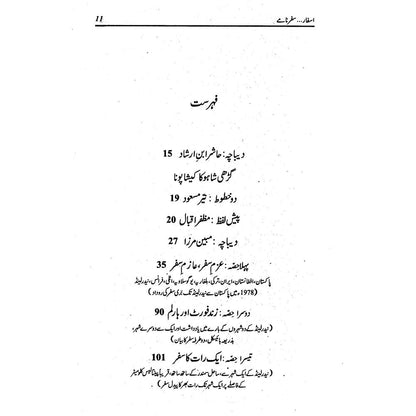 اسفار... سفرنامے 11
فہرست
دیباچہ: حاشر ابنِ ارشاد 15
گڑھی شاہو کا کیشا پوتا
دو خطوط: نیر مسعود 19
پیش لفظ: مظفر اقبال 20
دیباچہ: مبین مرزا 27
پہلا حصّہ: عزمِ سفر، عازمِ سفر 35
پاکستان، افغانستان، ایران، ترکی، بلغاریہ، یوگوسلاویہ، اٹلی، فرانس، نیدرلینڈ
(1978 میں پاکستان سے نیدرلینڈ تک زمینی سفر کی روداد)
دوسرا حصّہ: زندفورٹ اور ہارلم 90
(نیدرلینڈ کے دو شہروں کے بارے میں یادداشت اور ایک سے دوسرے شہر،
بذریعہ بائیسکل، دو طرفہ سفر کا بیان)
تیسرا حصّہ: ایک رات کا سفر 101
(نیدرلینڈ کے ایک شہر سے، ساحلِ سمندر کے ساتھ ساتھ، قریباً پینتالیس کلومیٹر
کے فاصلے پر ایک شہر تک رات بھر کا پیدل سفر)